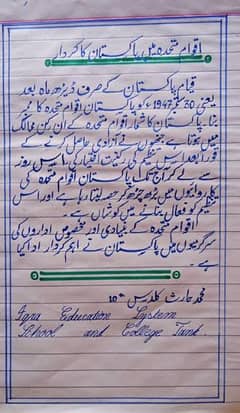 اقوام متحدہ میں پاکستان کا کردار
قیام پاکستان کے صرف ڈیڑھ ماہ بعد
یعنی 30 ستمبر 1947ء کو پاکستان اقوام متحدہ کا ممبر
بنا۔ پاکستان کا شمار اقوام متحدہ کے ان رکن ممالک
میں ہوتا ہے جنہوں نے آزادی حاصل کرنے کے
فوراً بعد اس تنظیم کی رکنیت اختیار کی۔ اس روز
سے لے کر آج تک پاکستان اقوام متحدہ کی
کارروائیوں میں بڑھ چڑھ کر حصہ لیتا رہا ہے اور اس
تنظیم کو فعال بنانے میں کوشاں ہے۔
اقوام متحدہ کے بنیادی اور مخصوص اداروں کی
سرگرمیوں میں پاکستان نے اہم کردار ادا کیا
ہے۔
محمد حارث کلاس 10th
Iqra Education System
School and College Tank